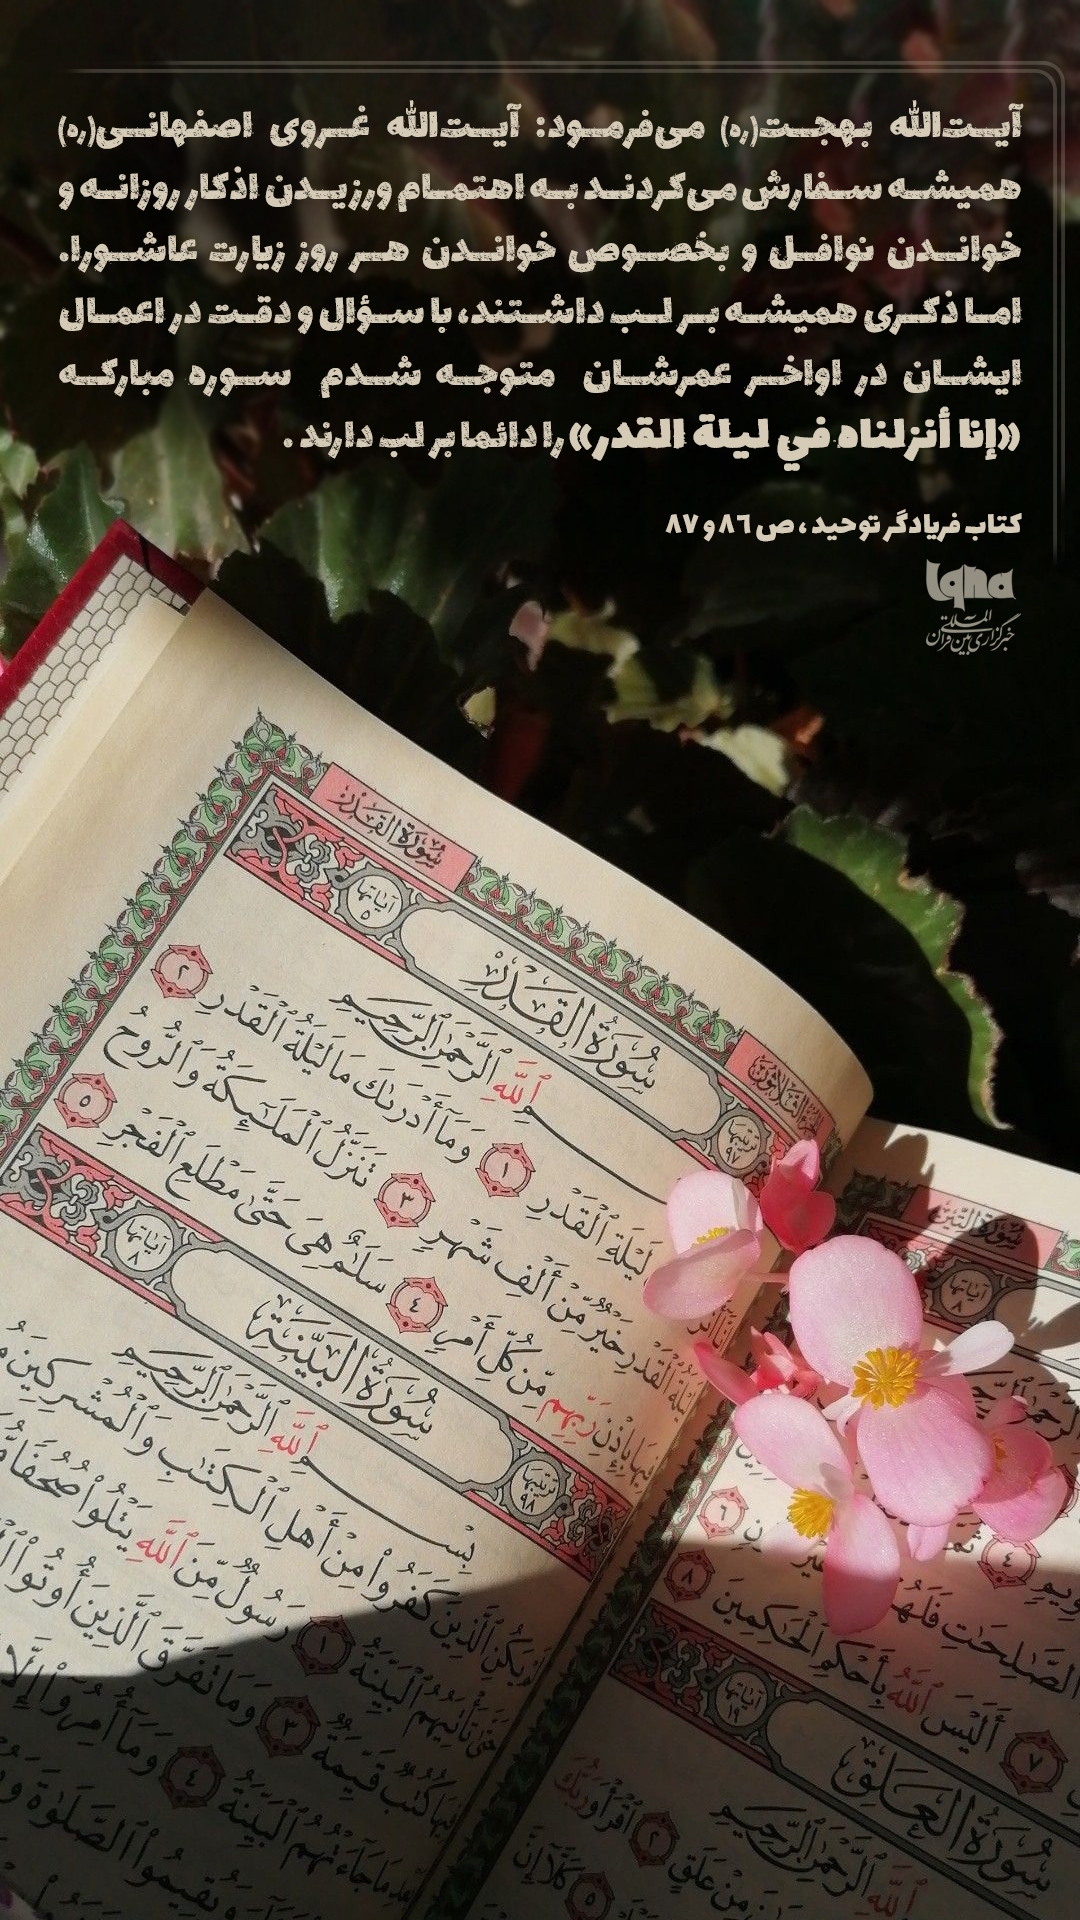 آیت‌الله بهجت(ره) می‌فرمود: آیت‌الله غروی اصفهانی(ره)
همیشه سفارش می‌کردند به اهتمام ورزیدن اذکار روزانه و
خواندن نوافل و بخصوص خواندن هر روز زیارت عاشورا.
اما ذکری همیشه بر لب داشتند، با سؤال و دقت در اعمال
ایشان در اواخر عمرشان متوجه شدم سوره مبارکه
«إنا أنزلناه في ليلة القدر» را دائما بر لب دارند .
کتاب فریادگر توحید ، ص ٨٦ و ٨٧
Iqna
خبرگزاری بین‌المللی قرآن
سُورَةُ القَدْرِ
آياتها ٥
سُورَةُ القَدْرِ
ترتيبها ٩٧
ٱللَّهِ ٱلرَّحْمَٰنِ ٱلرَّحِيمِ
لَيْلَةِ ٱلْقَدْرِ ١ وَمَآ أَدْرَىٰكَ مَا لَيْلَةُ ٱلْقَدْرِ ٢
لَيْلَةُ ٱلْقَدْرِ خَيْرٌ مِّنْ أَلْفِ شَهْرٍ ٣ تَنَزَّلُ ٱلْمَلَٰٓئِكَةُ وَٱلرُّوحُ
فِيهَا بِإِذْنِ رَبِّهِم مِّن كُلِّ أَمْرٍ ٤ سَلَٰمٌ هِىَ حَتَّىٰ مَطْلَعِ ٱلْفَجْرِ ٥
آياتها ٨
سُورَةُ البَيِّنَة
ترتيبها ٩٨
بِسْمِ ٱللَّهِ ٱلرَّحْمَٰنِ ٱلرَّحِيمِ
لَمْ يَكُنِ ٱلَّذِينَ كَفَرُوا۟ مِنْ أَهْلِ ٱلْكِتَٰبِ وَٱلْمُشْرِكِينَ
حَتَّىٰ تَأْتِيَهُمُ ٱلْبَيِّنَةُ ١ رَسُولٌ مِّنَ ٱللَّهِ يَتْلُوا۟ صُحُفًا
فِيهَا كُتُبٌ قَيِّمَةٌ ٣ وَمَا تَفَرَّقَ ٱلَّذِينَ أُوتُوا۟
مَا جَآءَتْهُمُ ٱلْبَيِّنَةُ ٤ وَمَآ أُمِرُوٓا۟ إِلَّا
وَيُقِيمُوا۟ ٱلصَّلَوٰةَ
سُورَةُ التِّين
آياتها ٨
ٱلصَّٰلِحَٰتِ فَلَهُمْ
٧ أَلَيْسَ ٱللَّهُ بِأَحْكَمِ ٱلْحَٰكِمِينَ ٨
آياتها ١٩
سُورَةُ العَلَق
ٱللَّهِ ٱلرَّحْمَٰنِ ٱلرَّحِيمِ
مِنْ عَلَقٍ ٢ ٱقْرَأْ وَرَبُّكَ
٥ كَلَّآ إِنَّ